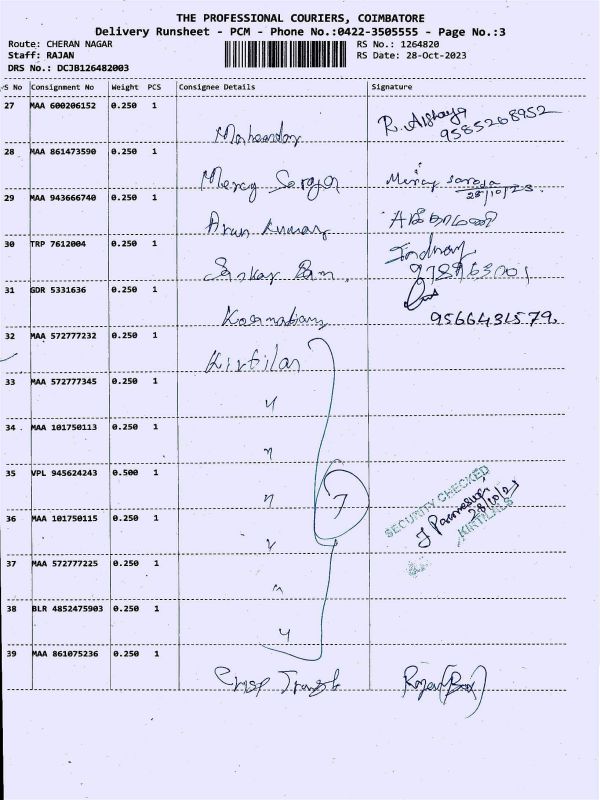 THE PROFESSIONAL COURIERS, COIMBATORE
Delivery Runsheet - PCM - Phone No.:0422-3505555 - Page No.:3
Route: CHERAN NAGAR RS No.: 1264820
Staff: RAJAN RS Date: 28-Oct-2023
DRS No.: DCJB126482003
S No Consignment No Weight PCS Consignee Details Signature
27 MAA 600206152 0.250 1
R. Aishwarya
9585268952
28 MAA 861473590 0.250 1
Mercy Saroja
28/10/23
29 MAA 943666740 0.250 1
Arun Kumar
30 TRP 7612004 0.250 1
Sankar Ram
31 GDR 5331636 0.250 1
9566431579
32 MAA 572777232 0.250 1
Kirtilal
33 MAA 572777345 0.250 1
34 MAA 101750113 0.250 1
35 VPL 945624243 0.500 1
7
SECURITY CHECKED
28/10/23
KIRTILALS
36 MAA 101750115 0.250 1
37 MAA 572777225 0.250 1
38 BLR 4852475903 0.250 1
39 MAA 861075236 0.250 1